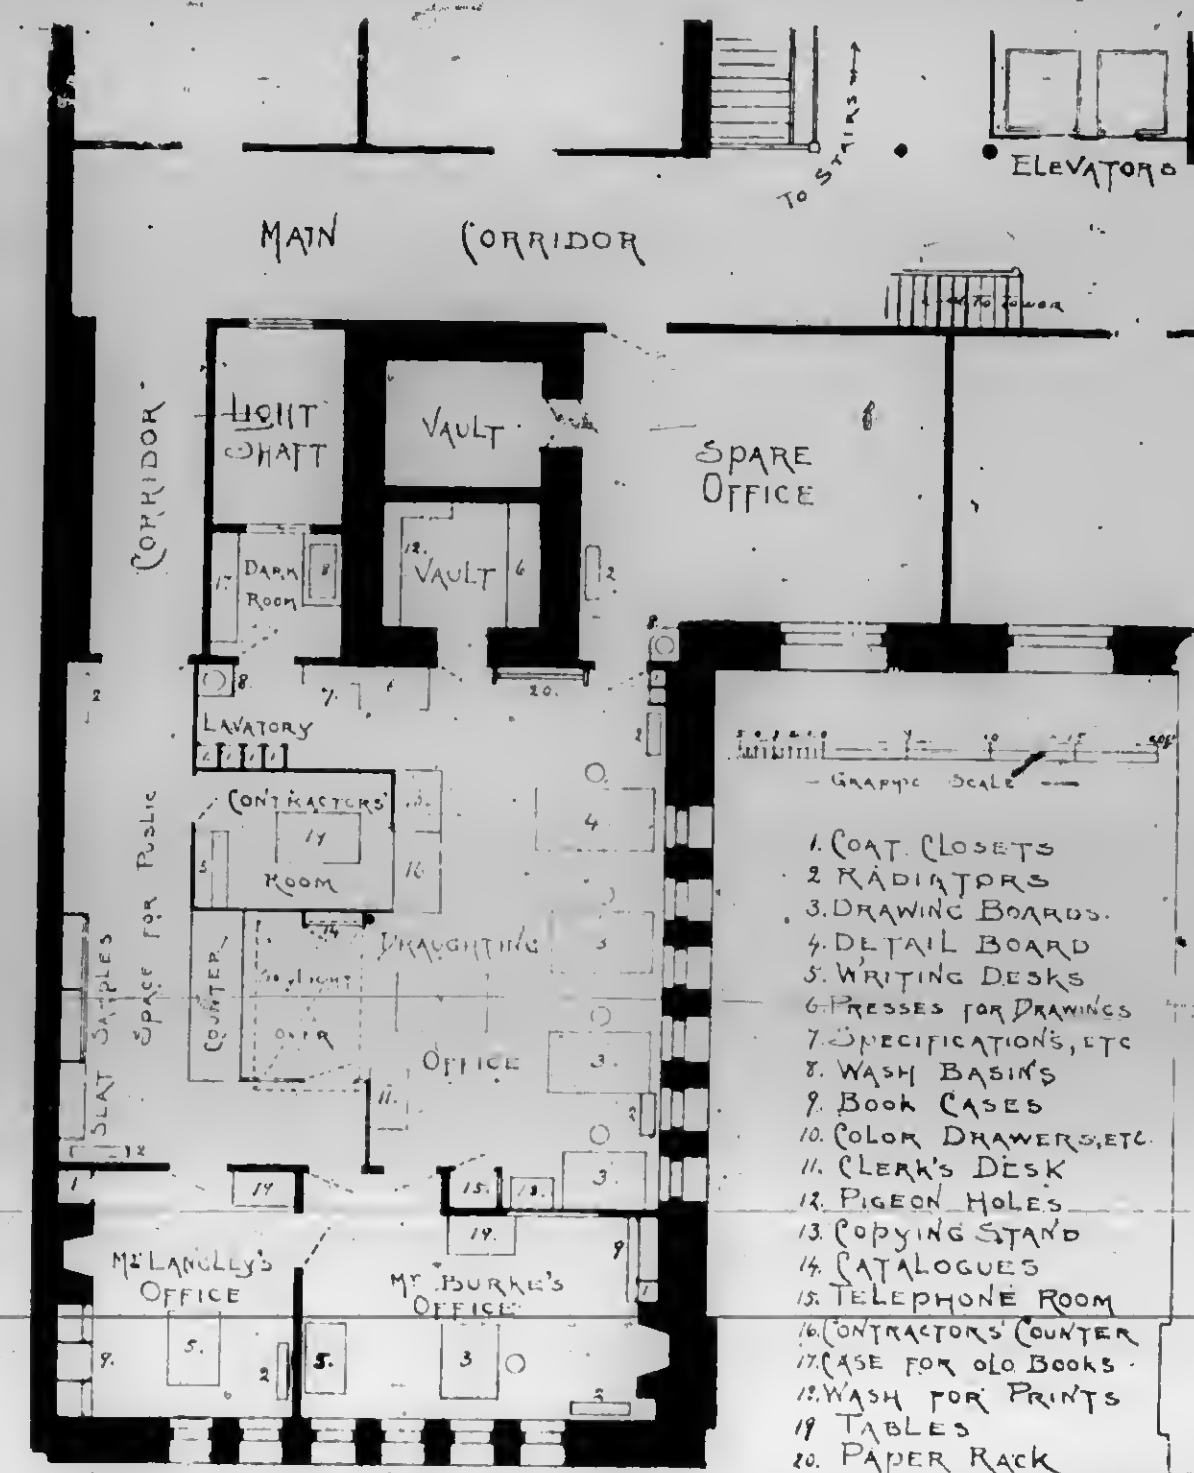 TO STAIRS
ELEVATORS
MAIN CORRIDOR
TO TOWER
CORRIDOR
LIGHT
SHAFT
VAULT
SPARE
OFFICE
12.
VAULT
6
2
17.
DARK
ROOM
8
8.
2
8.
7.
6
20.
2
LAVATORY
1 1 1 1
CONTRACTORS'
19
ROOM
5
16
4
SPACE FOR PUBLIC
SLAT SAMPLES
COUNTER
14
SKYLIGHT
OVER
DRAUGHTING
OFFICE
3
3.
11.
2
2
3.
1
19
15.
13.
MR LANGLEY'S
OFFICE
19.
9
MR BURKE'S
OFFICE
1
9.
5.
2
5.
3
2
GRAPHIC SCALE
1. COAT CLOSETS
2 RADIATORS
3. DRAWING BOARDS.
4. DETAIL BOARD
5. WRITING DESKS
6. PRESSES FOR DRAWINGS
7. SPECIFICATIONS, ETC
8. WASH BASINS
9. BOOK CASES
10. COLOR DRAWERS, ETC.
11. CLERK'S DESK
12. PIGEON HOLES
13. COPYING STAND
14. CATALOGUES
15. TELEPHONE ROOM
16. CONTRACTORS' COUNTER
17. CASE FOR OLD BOOKS
18. WASH FOR PRINTS
19 TABLES
20. PAPER RACK